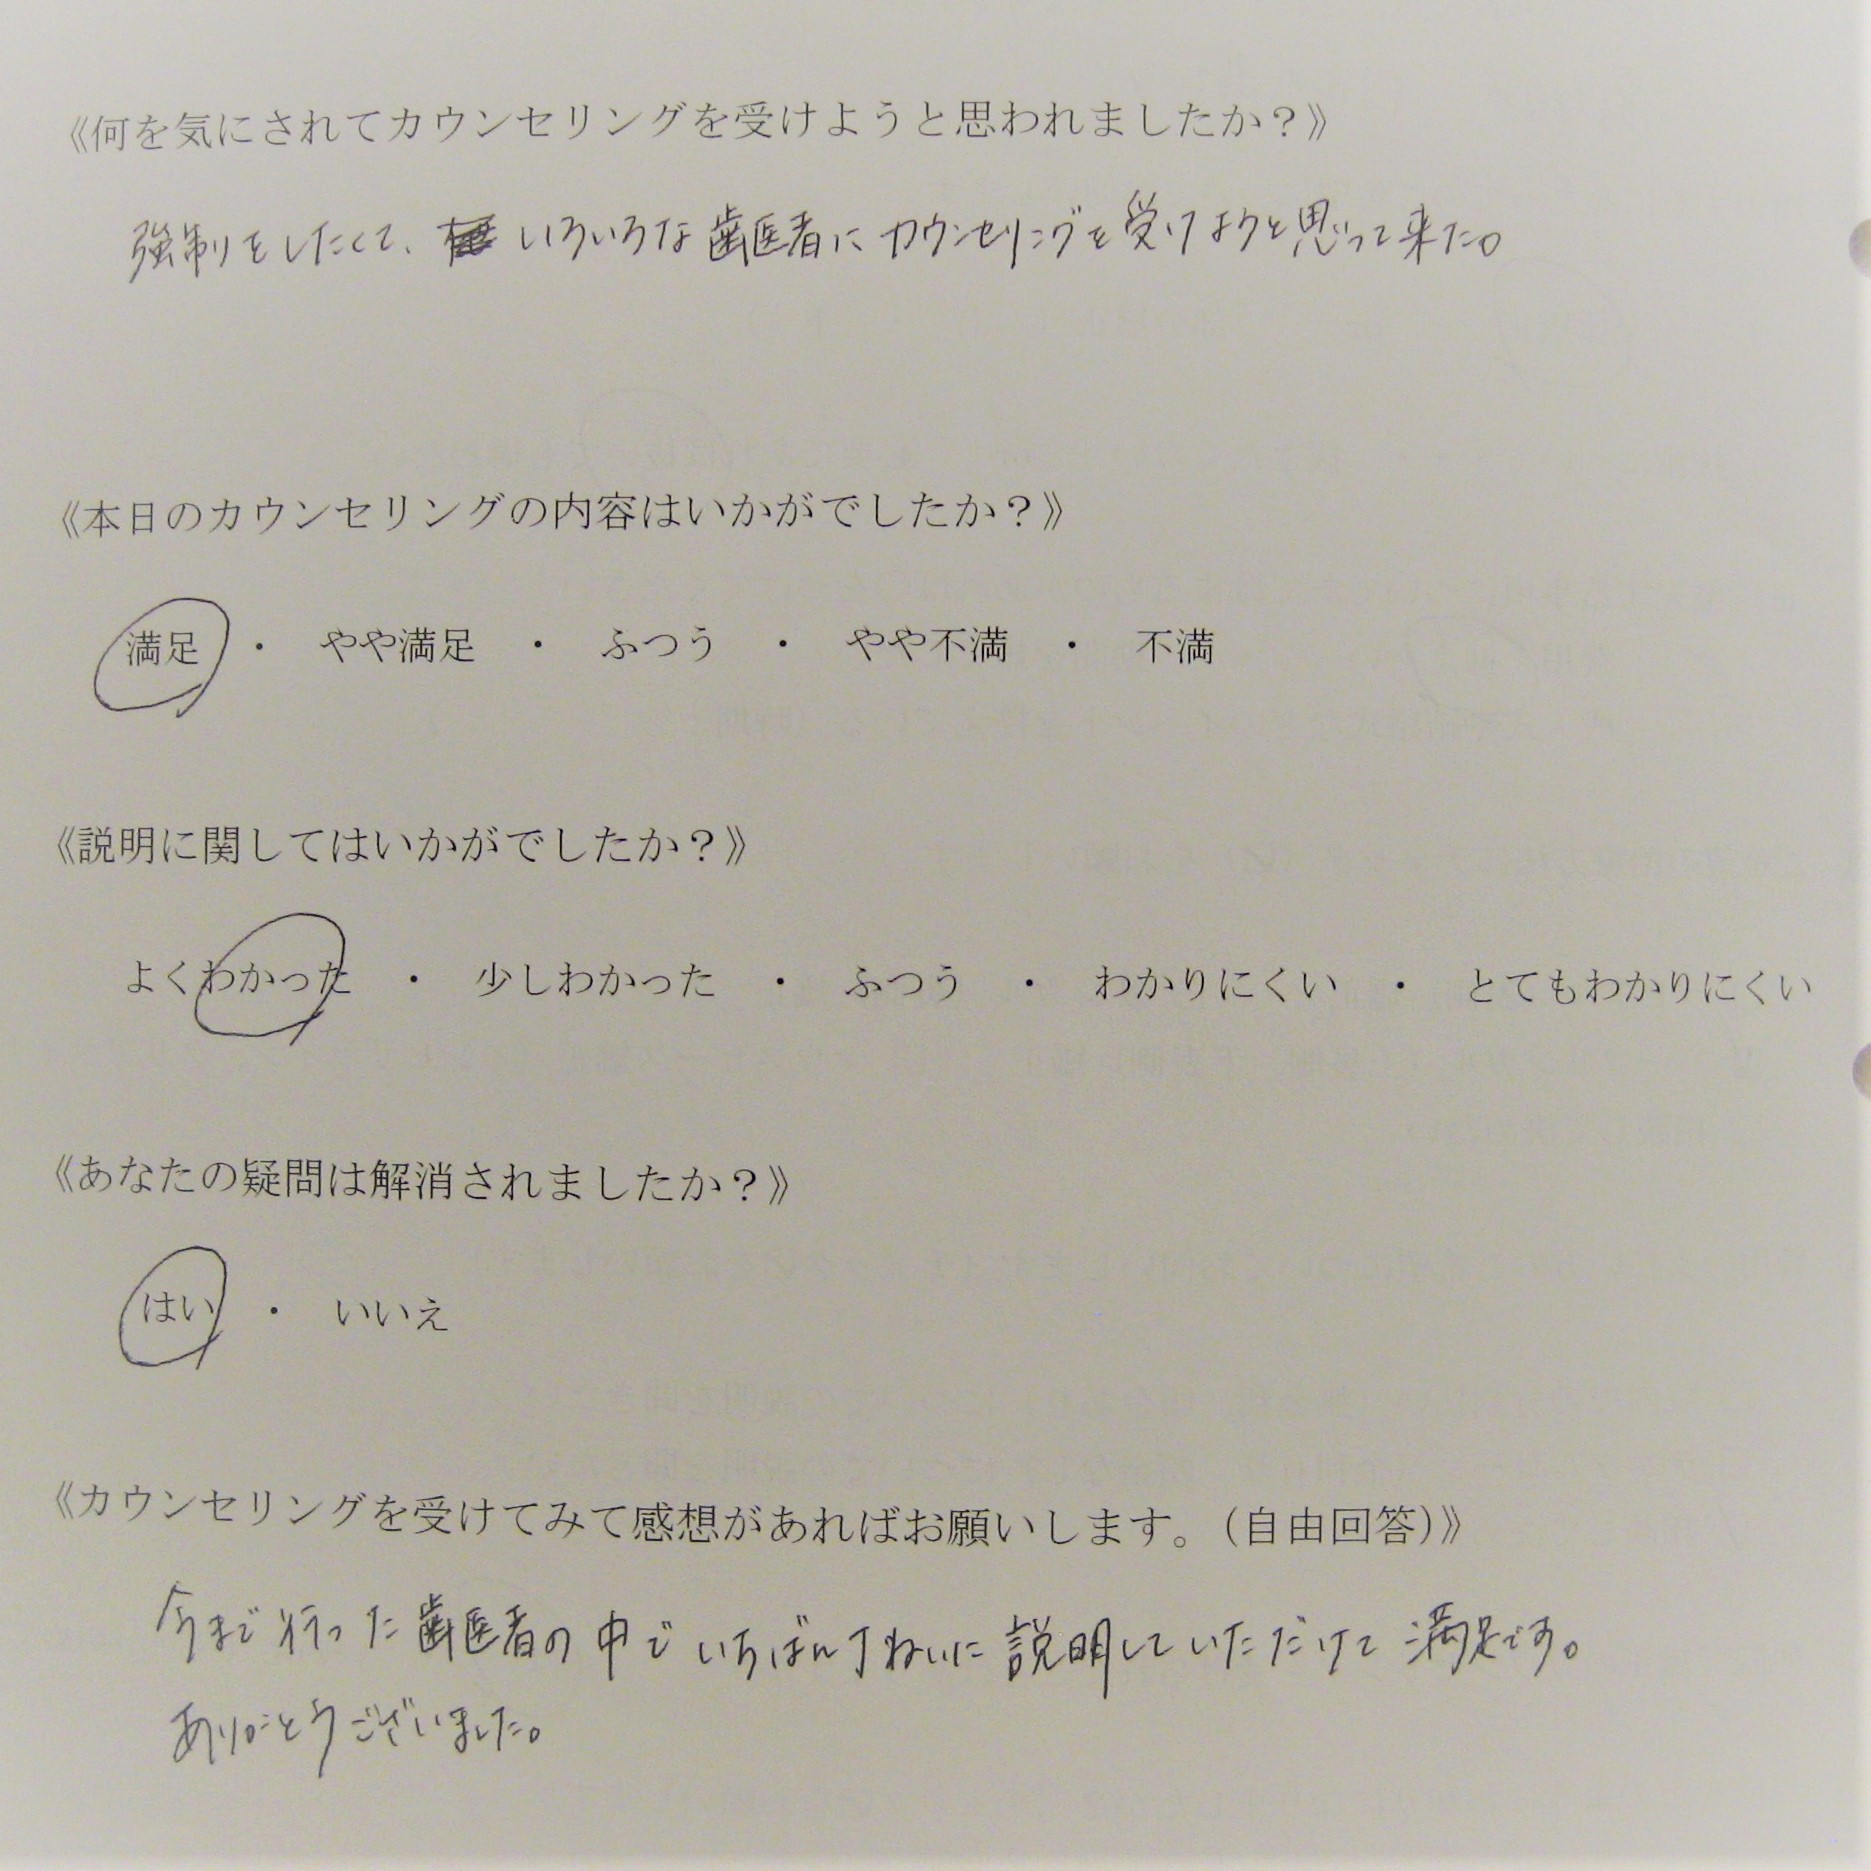 《何を気にされてカウンセリングを受けようと思われましたか？》
強制をしたくて、いろいろな歯医者にカウンセリングを受けようと思って来た。
《本日のカウンセリングの内容はいかがでしたか？》
満足 ・ やや満足 ・ ふつう ・ やや不満 ・ 不満
《説明に関してはいかがでしたか？》
よくわかった ・ 少しわかった ・ ふつう ・ わかりにくい ・ とてもわかりにくい
《あなたの疑問は解消されましたか？》
はい ・ いいえ
《カウンセリングを受けてみて感想があればお願いします。（自由回答）》
今まで行った歯医者の中でいちばん丁ねいに説明していただけて満足です。
ありがとうございました。